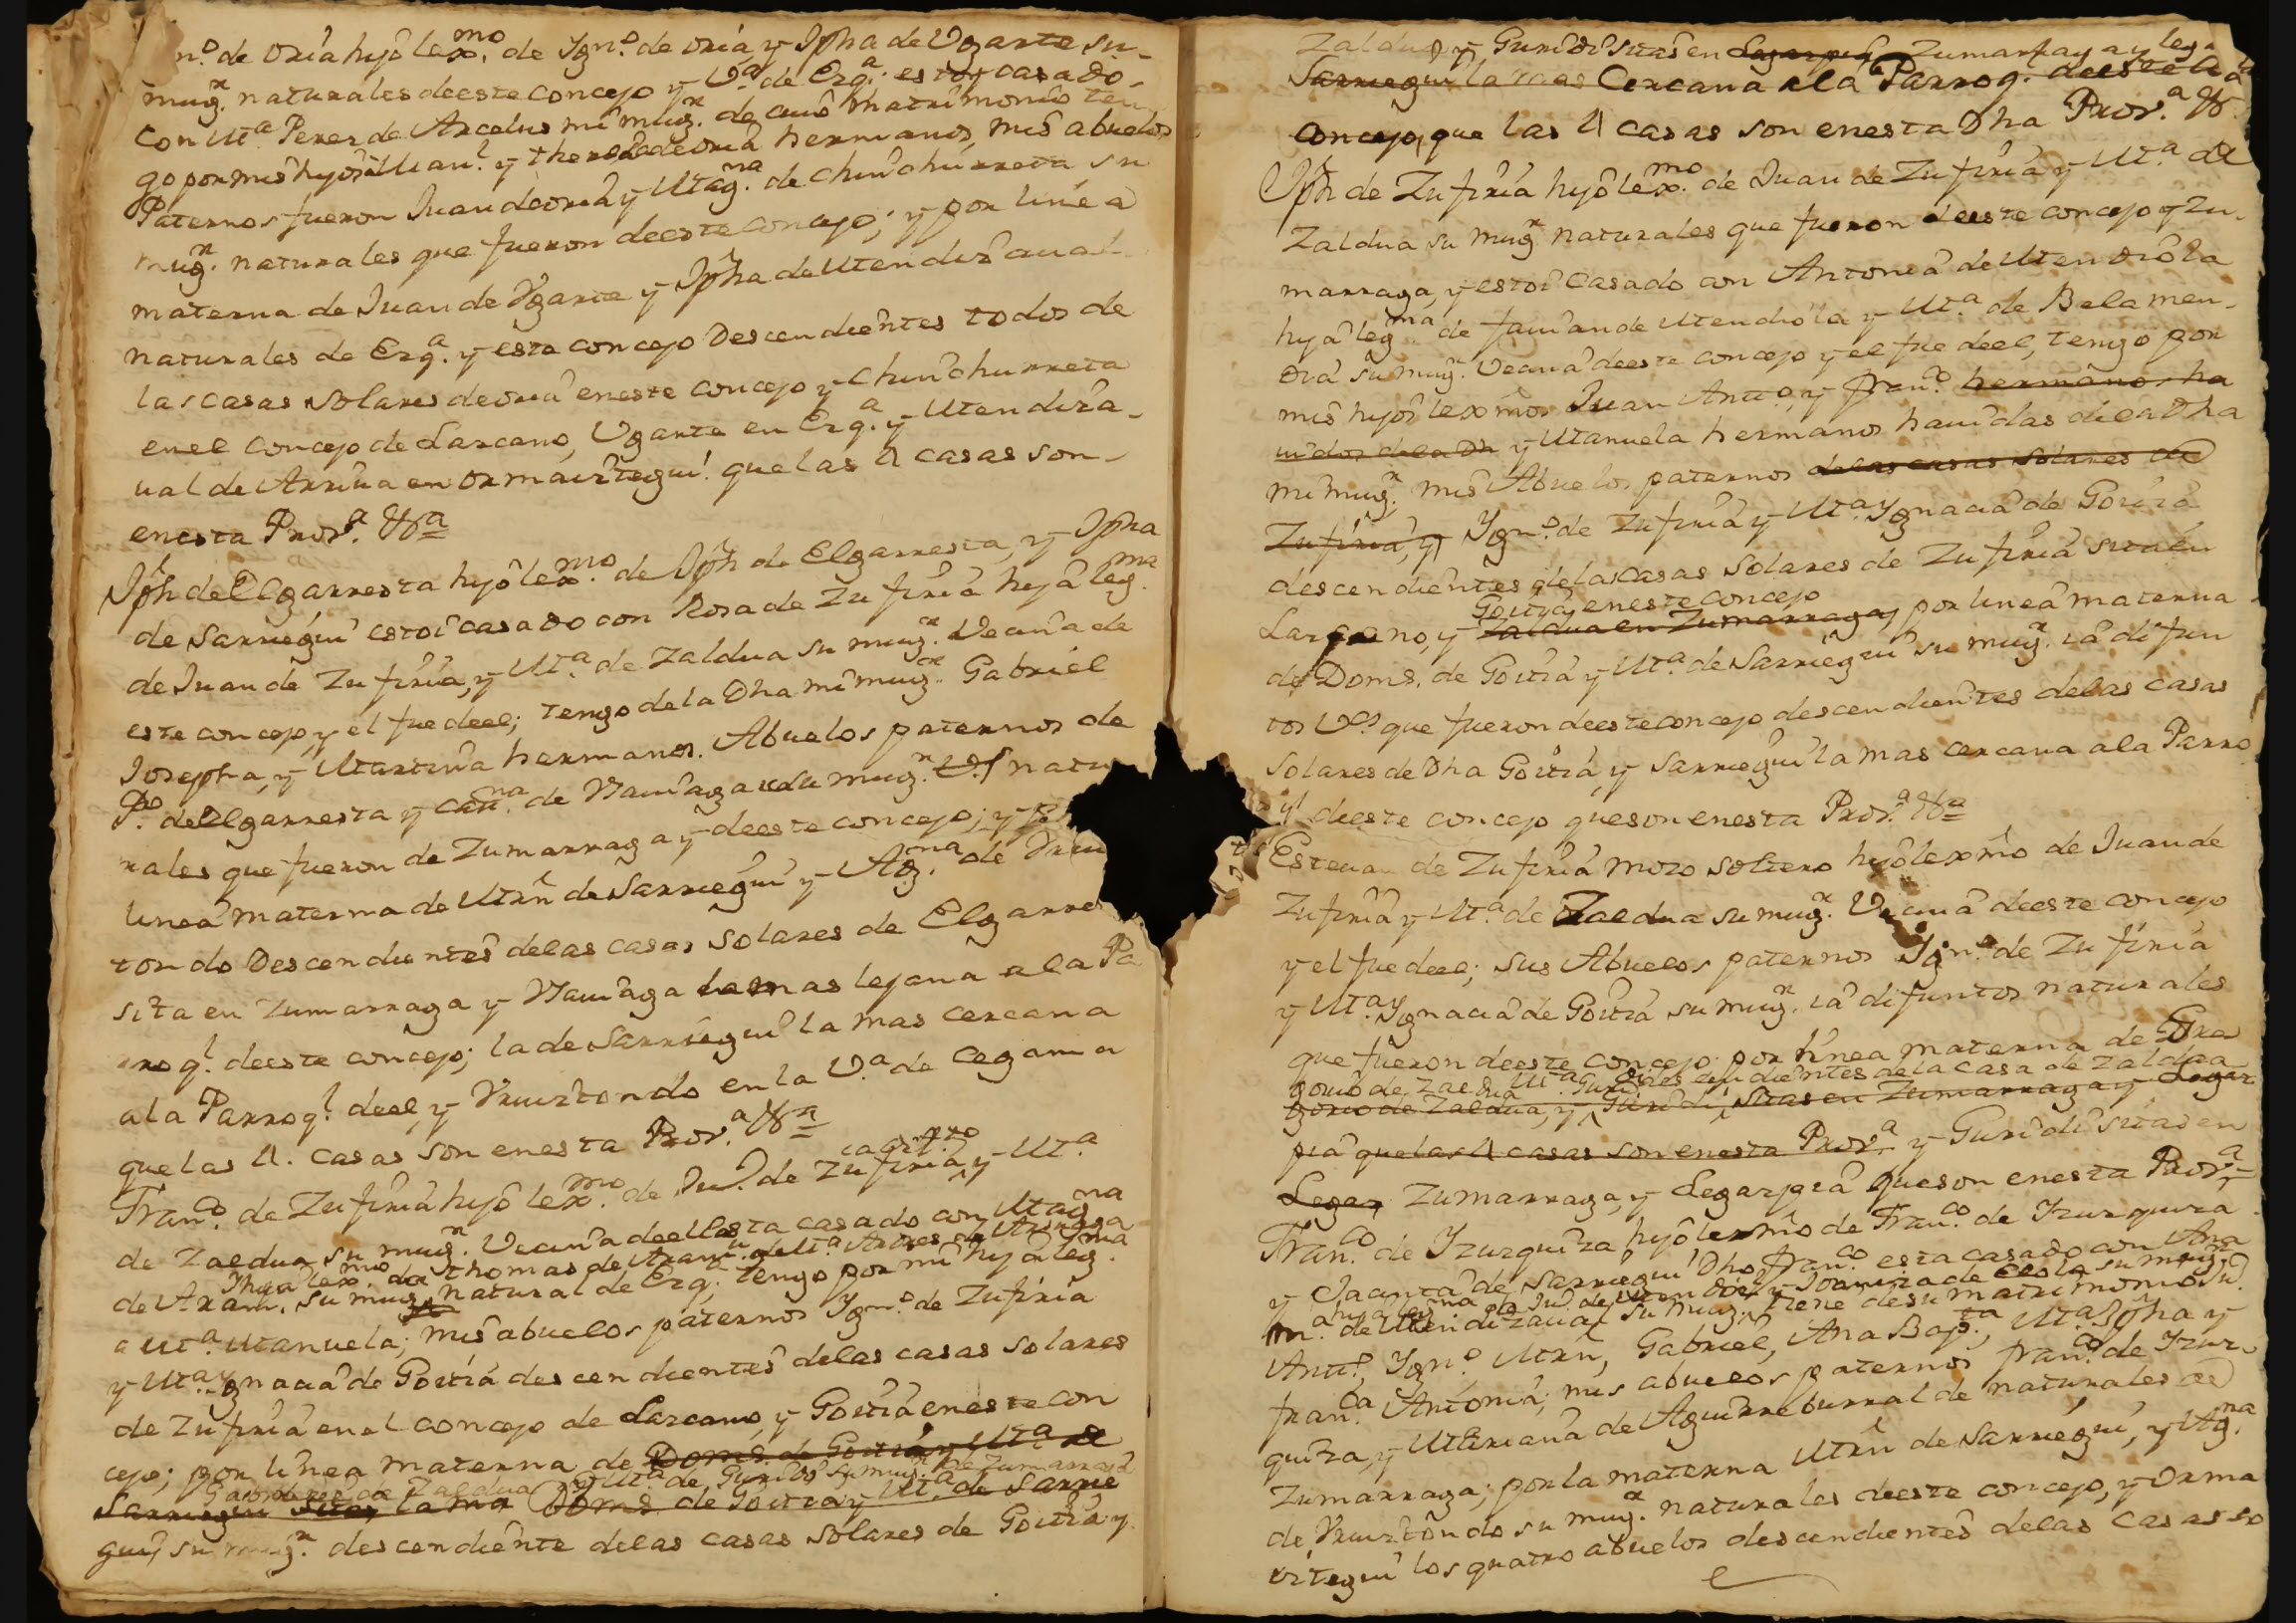 n.º de oria hyô lex.mo de Ygn.º de oria, y Jpha de Ugarte su
mug.r naturales deeste concejo y V.ª de Ezq.ª estoy casado
con M.ª Perez de Arcelus mi mug.r de cuio matrimonio ten
go por mis hyos Man.l y theresa de oria hermanos, mis abuelos
Paternos fueron Juan de oria y Mag.na de chinchurreta su
mug.r naturales que fueron deeste concejo; y por linea
materna de Juan de Ugarte y Jpha de Mendizaual
naturales de Ezq.ª y este concejo Descendientes todos de
las casas solares de oria eneste concejo y chinchurreta
enel concejo de Lazcano, Ugarte en Ezq.ª y Mendiza-
ual de Arriua en ormaiztegui que las 4 casas son
enesta Prov.ª &ª
Jph de Elgarresta hyô lex.mo de Jph de Elgarresta, y Jpha
de Sarriegui estoi casado con Rosa de Zufiria hyâ leg.ma
de Juan de Zufiria, y M.ª de Zaldua su mug.r Vecina de
este concejo, y el fue deel; tengo de la Dha mi mug.r Gabriel
Josepha, y Martina hermanos. Abuelos paternos de
P.º de Elgarresta y Cat.na de su mug.r natu
rales que fueron de Zumarraga y deeste concejo; y p
linea materna de Mrñ de Sarriegui y Mag.na de Vrui
tondo Descendientes delas casas solares de Elgarres
sita en Zumarraga y la mas lejana ala Pa
rroq.l deeste concejo; la de Sarriegui la mas cercana
ala Parroq.l deel, y Vruiztondo en la V.ª de Cegama
que las 4. casas son enesta Prov.ª &ª
Fran.co de Zufiria hyô lex.mo de Ju.º de Zufiria, y M.ª
de Zaldua su mug.r Vecina deel esta casado con Mag.na
de Aram. su mug.r natural de Ezq.ª tengo por mi hyâ leg.ma
a M.ª Manuela; mis abuelos paternos Ygn.º de Zufiria
y M.ª Ygnacia de Goitia descendientes delas casas solares
de Zufiria enel concejo de Lazcano, y Goitia eneste con
cejo; por linea materna de Doms. de Goitia y M.ª de
Sarriegui sitas la mas Doms. de Goitia y M.ª de Sarrie
gui, su mug.r descendiente delas casas solares de Goitia y
Zaldua y Guridi sitas en Legazpia Zumarraga y Lega
Sarriegui la mas Cercana ala Parroq.l deeste
concejo, que las 4 casas son enesta Dha Prov.ª &.
Jph de Zufiria hyô lex.mo de Juan de Zufiria y M.ª de
Zaldua su mug.r naturales que fueron deeste concejo y Zu-
marraga, y estoi Casado con Antonia de Mendiola
hyâ leg.ma de Juan de Mendiola y M.ª de Belamen-
dia su mug.r Vecina deeste concejo y el fue deel, tengo por
mis hyos lexmos Juan Antt.º, y Fran.co hermanos ha
uidos dela Dh y Manuela hermanos hauidas dela Dha
mi mug.r mis Abuelos paternos delas casas solares de
Zufiria, y Ygn.º de Zufiria y M.ª Ygnacia de Goitia
descendientes delas casas solares de Zufiria sita en
Goitia, eneste concejo
Lazcano, y Zaldua en Zumarraga, por linea materna
de Doms. de Goitia y M.ª de Sarriegui su mug.r iâ difun
tos V.os que fueron deeste concejo descendientes delas casas
solares de Dha Goitia, y Sarriegui la mas cercana ala Parro
q.l deeste concejo que son enesta Prov.ª &ª
Esteuan de Zufiria mozo soltero hyô lexmo de Juan de
Zufiria y M.ª de Zaldua su mug.r Vecina deeste concejo
y el fue deel; sus Abuelos paternos Ygn.º de Zufiria
y M.ª Ygnacia de Goitia su mug.r iâ difuntos naturales
que fueron deeste concejo por linea materna de Gra
gorio de Zaldua M.ª Guridi descendientes dela casa de Zaldua
gorio de Zaldua, y Guridi, sitas en Zumarraga y Legaz
pia que las 4 casas son enesta Prov.ª y Guridi sitas en
Legaz Zumarraga, y Legazpia que son enesta Prov.ª
Fran.co de Yzurquiza hyô lexmo de Fran.co de Yzurquiza
y Jacinta de Sarriegui Dho Fran.co esta casado con Ana
M.ª de Mendizaual su mug.r tiene de su matrimonio Ju.º
Antt.º, Ygn.º Mrñ, Gabriel, Ana Bap.ta, M.ª Jpha y
Fran.ca Antonia; mis abuelos paternos Fran.co de Yzur-
quiza, y Mariana de Aguirreburual de naturales de
Zumarraga; por la materna Mrñ de Sarriegui, y Mag.na
de Vruiztondo su mug.r naturales deeste concejo, y Orma
iztegui los quatro abuelos descendientes delas casas so